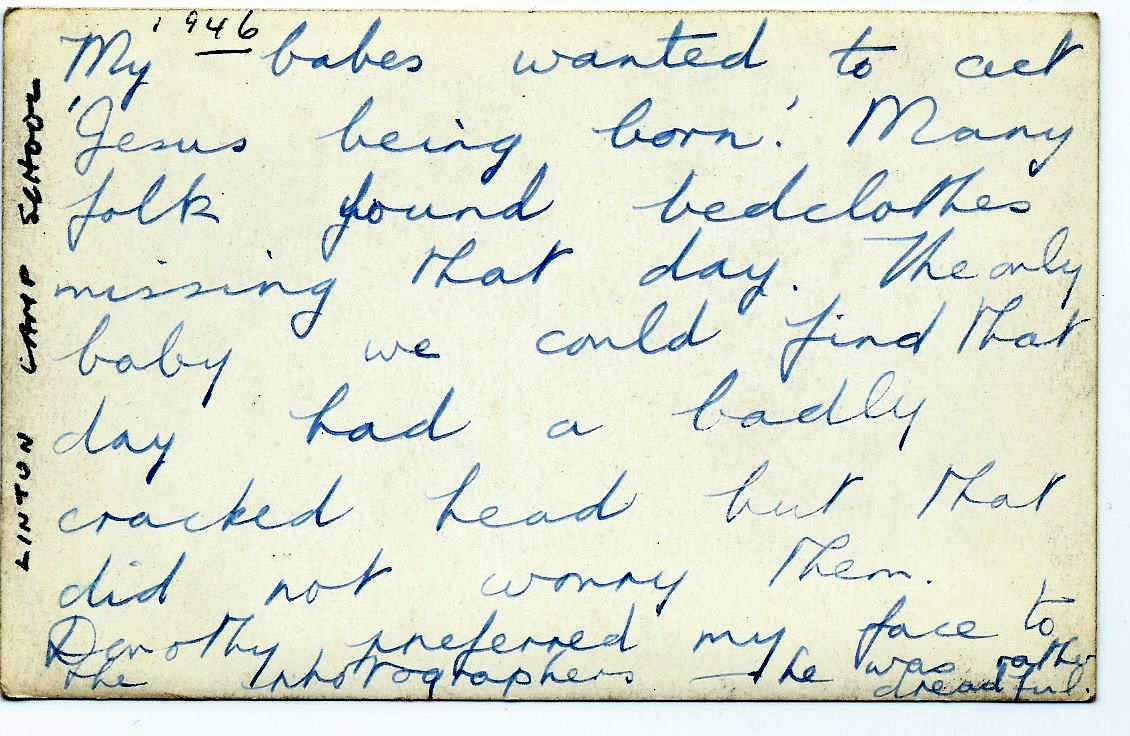 1946
My babes wanted to act
'Jesus being born.' Many
folk found bedclothes
missing that day. The only
baby we could find that
day had a badly
cracked head but that
did not worry them.
Dorothy preferred my face to
the photographers – he was rather
dreadful.
LINTON CAMP SCHOOL